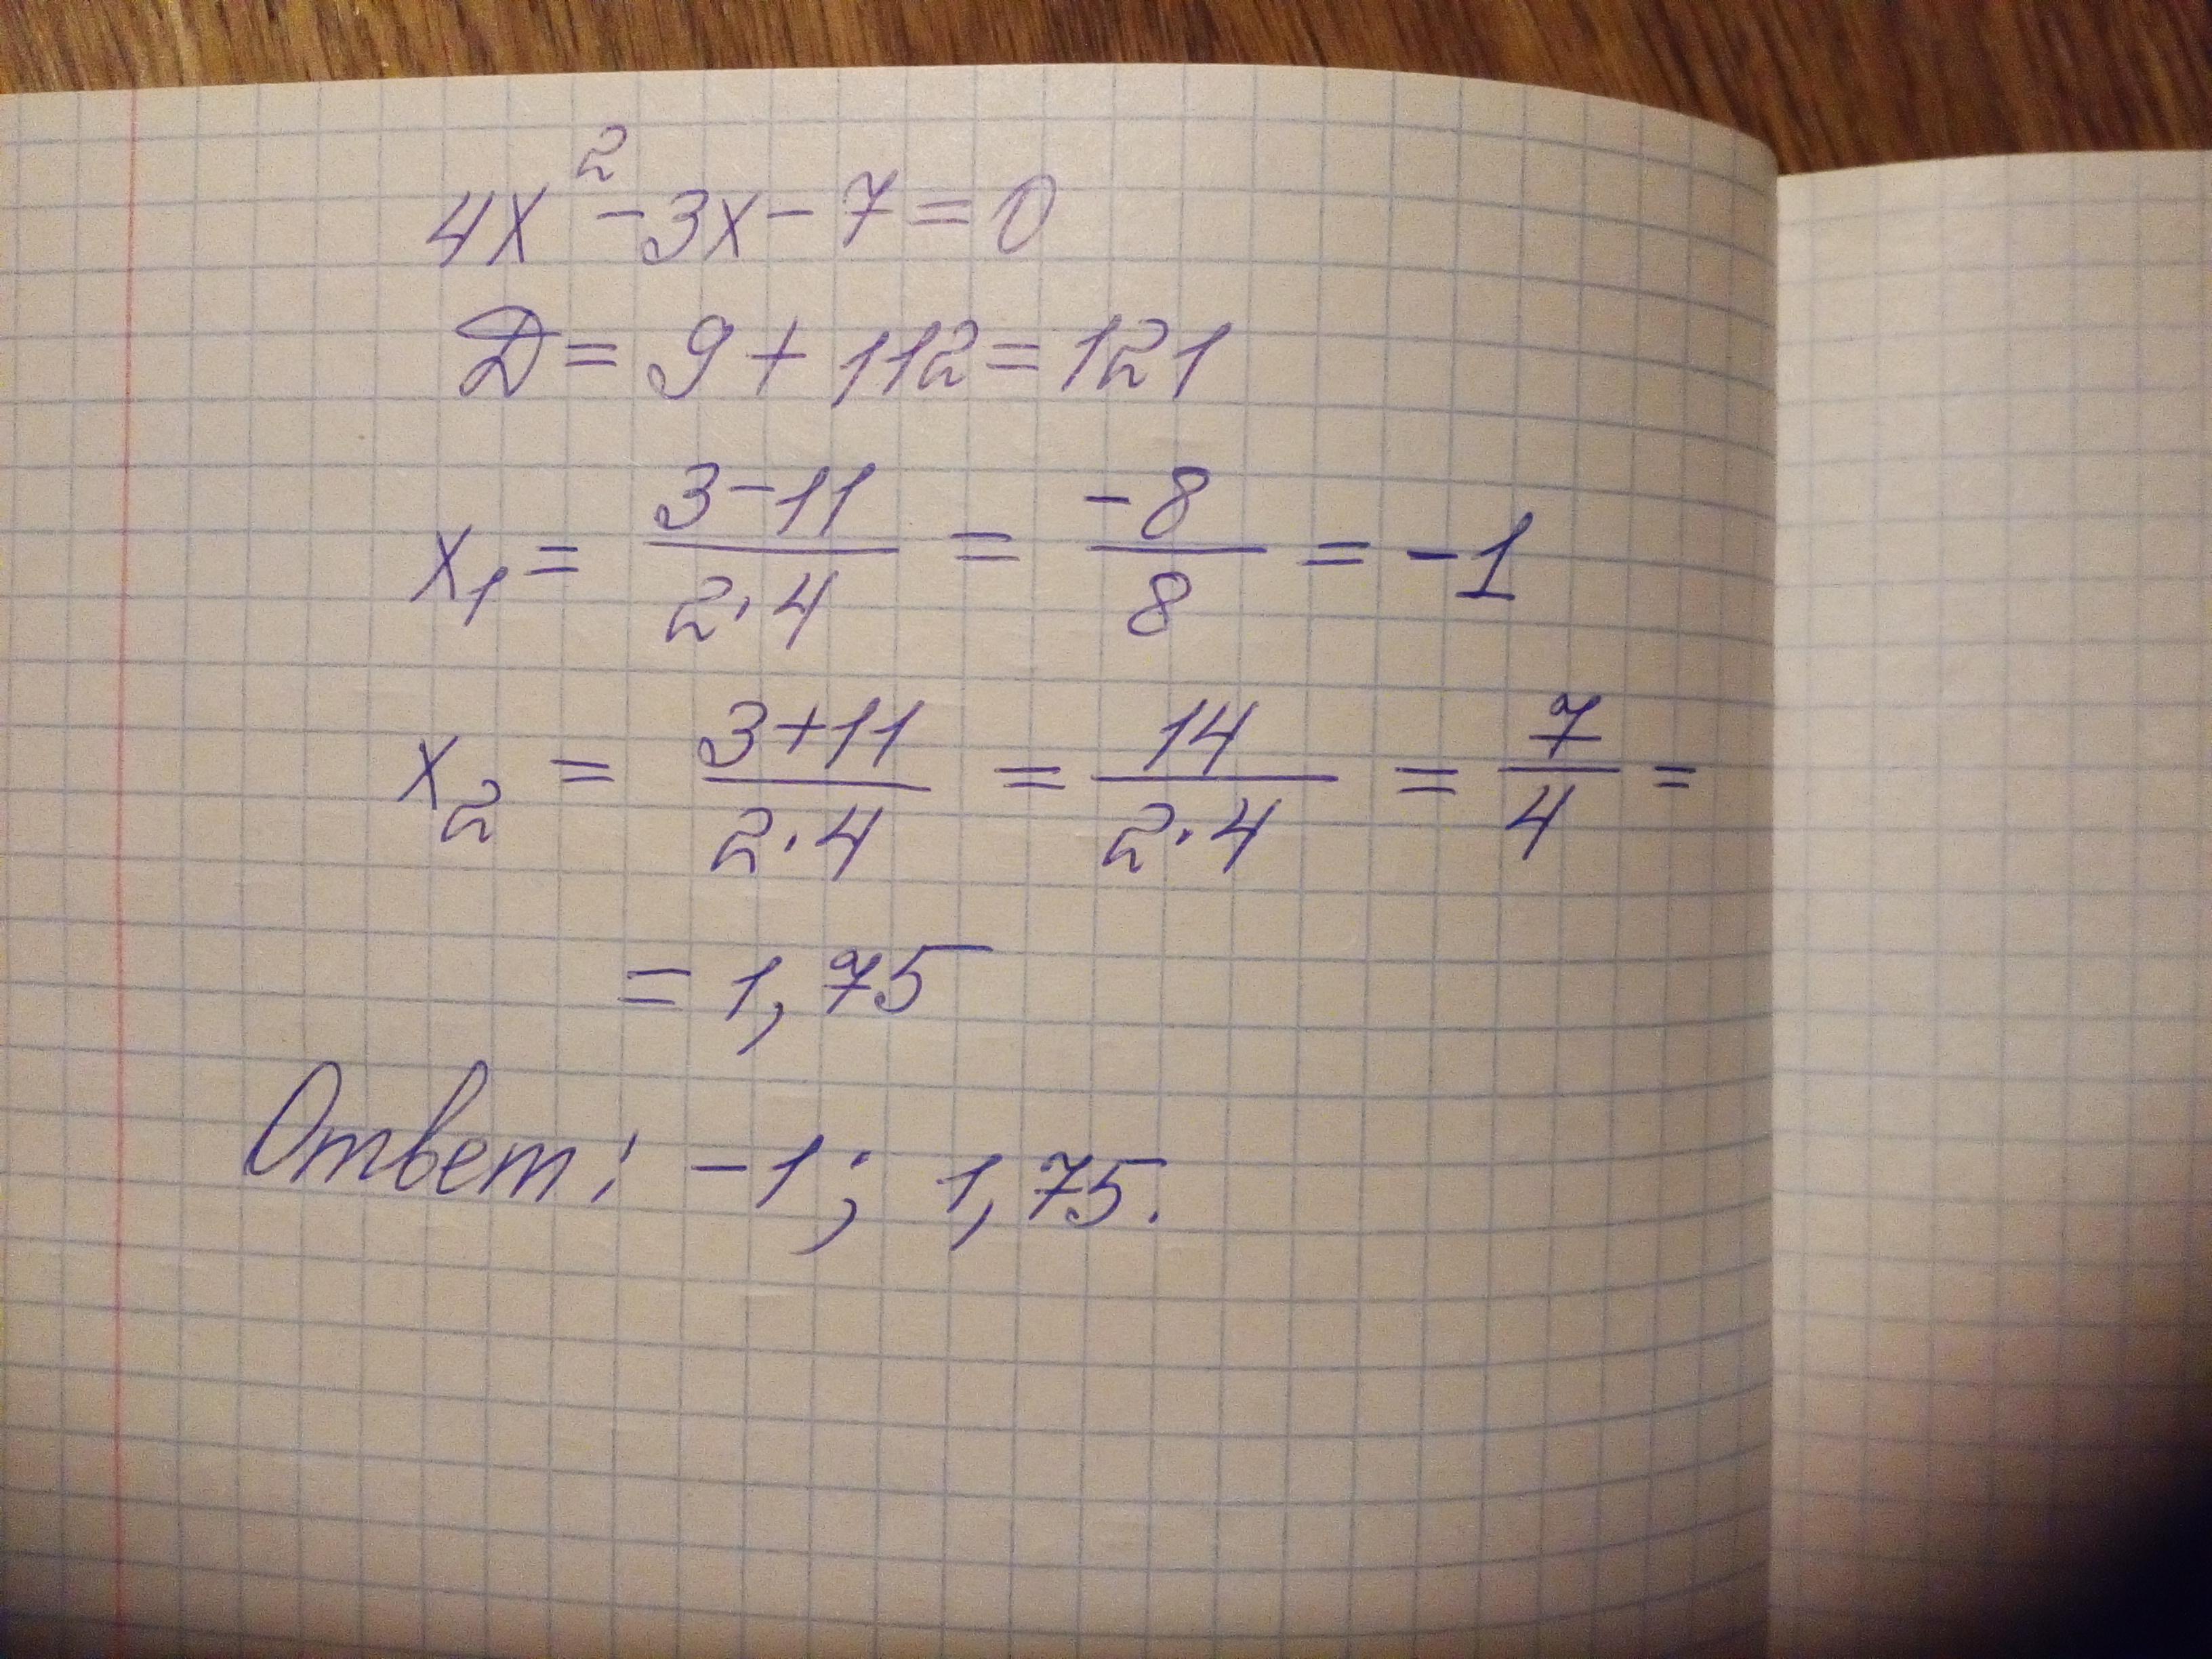 4x² - 3x - 7 = 0
Д = 9 + 112 = 121
x₁ = (3 - 11)/(2·4) = (-8)/8 = -1
x₂ = (3 + 11)/(2·4) = 14/(2·4) = 7/4 =
= 1,75
Ответ: -1; 1,75.